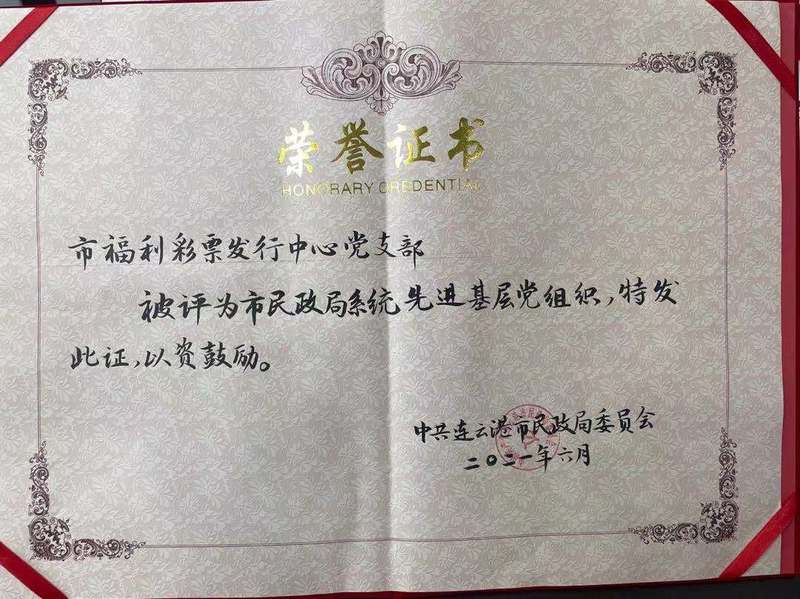 荣誉证书
HONORARY CREDENTIAL
市福利彩票发行中心党支部
被评为市民政局系统先进基层党组织，特发
此证，以资鼓励。
中共连云港市民政局委员会
二〇二一年六月